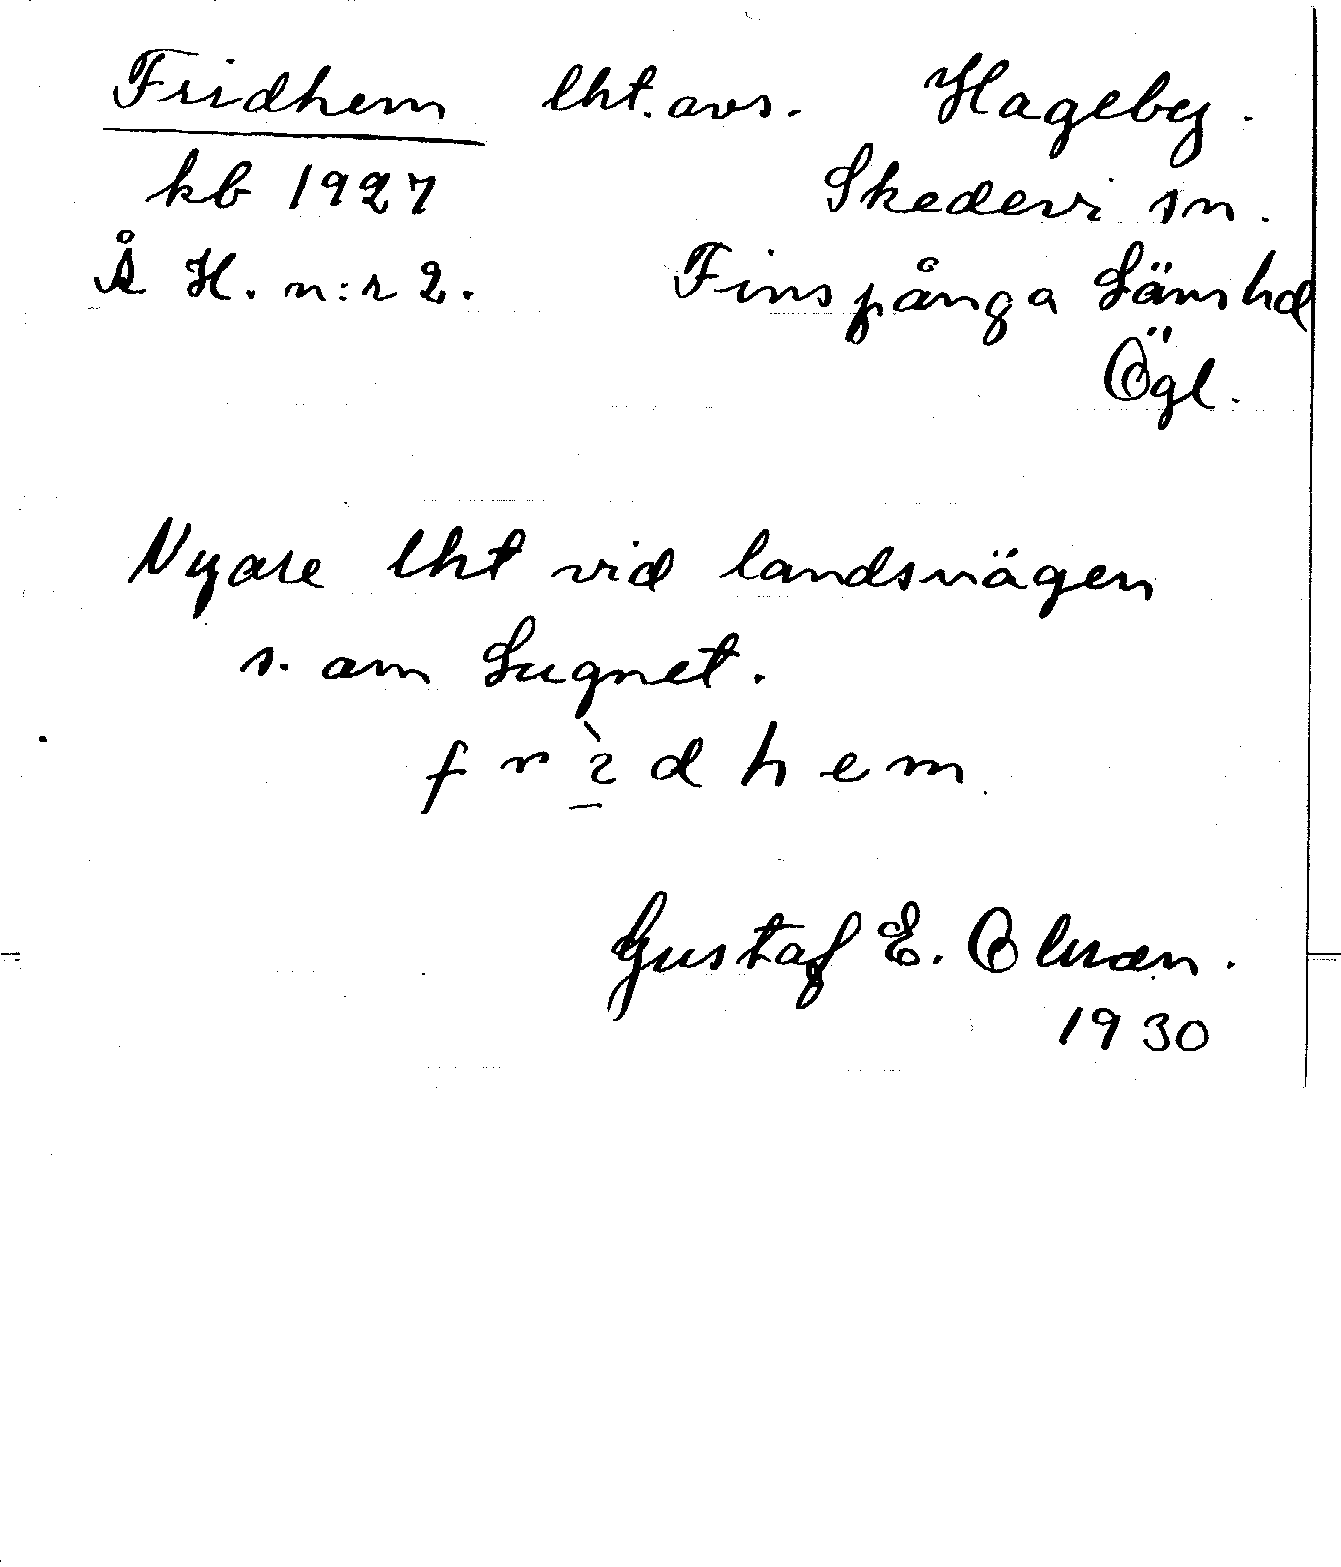 Fridhem lht. avs. Hageby.
kb 1927 Skedevi sn.
Å H. n:r 2. Finspånga Läns hd
Ögl.
Nyare lht vid landsvägen
s. om Lugnet.
f r ì d h e m
Gustaf E.
1930